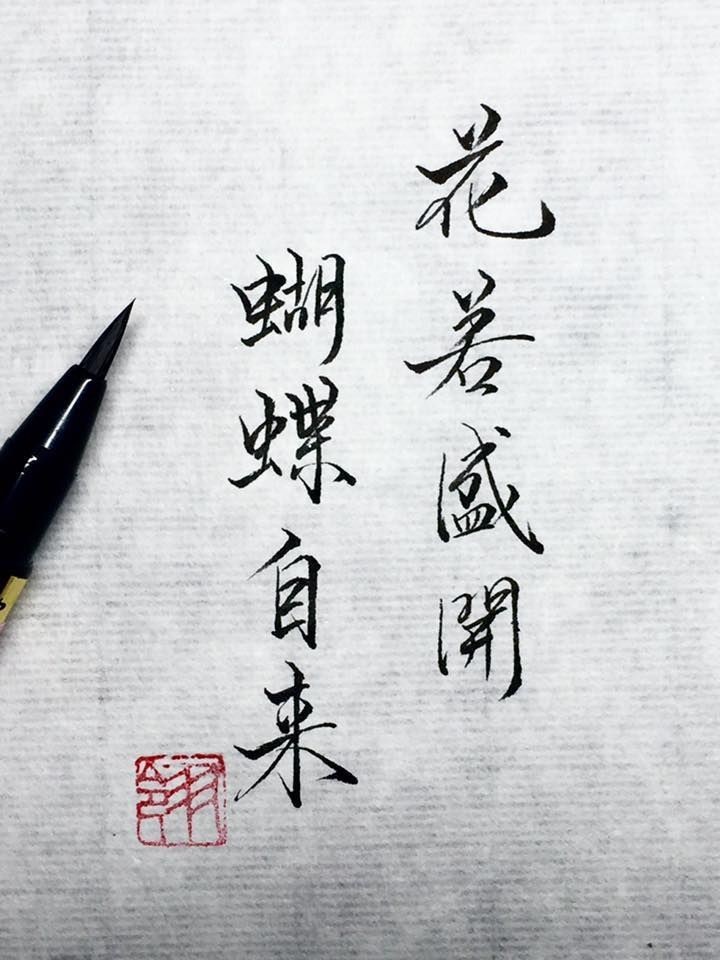 花若盛開
蝴蝶自来